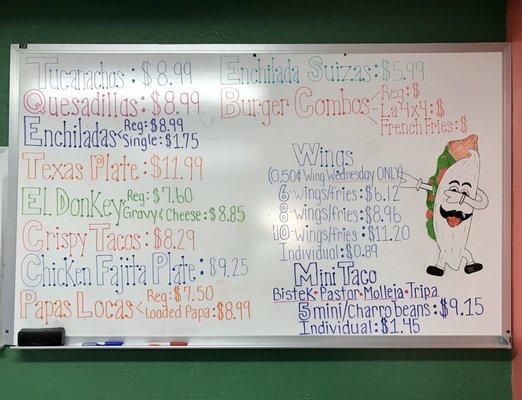 Tucanachos: $8.99
Quesadillas: $8.99
Enchiladas< Reg: $8.99
Single: $1.75
Texas Plate: $11.99
El Donkey< Reg: $7.60
Gravy & Cheese: $8.85
Crispy Tacos: $8.29
Chicken Fajita Plate: $9.25
Papas Locas< Reg: $7.50
Loaded Papa: $8.99
Enchilada Suizas: $5.99
Burger Combos
Reg: $
La 4x4: $
French Fries: $
Wings
(0.50¢ Wing Wednesday ONLY)
6-wings/fries: $6.12
8-wings/fries: $8.96
10-wings/fries: $11.20
Individual: $0.89
Mini Taco
Bistek • Pastor • Molleja • Tripa
5 mini/charro beans: $9.15
Individual: $1.45